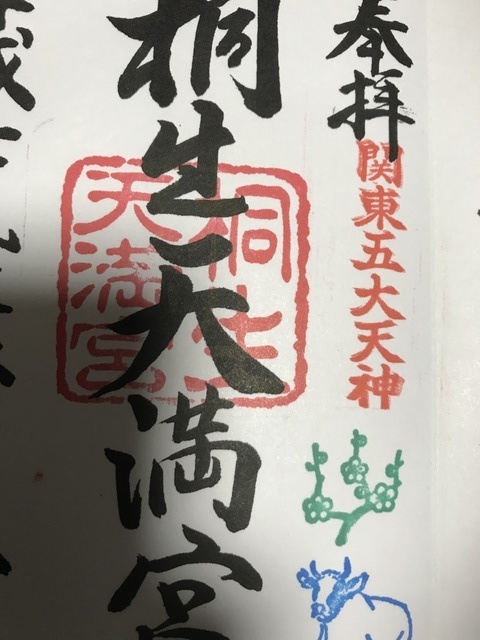 奉拝
関東五大天神
桐生天満宮
桐生
天満宮